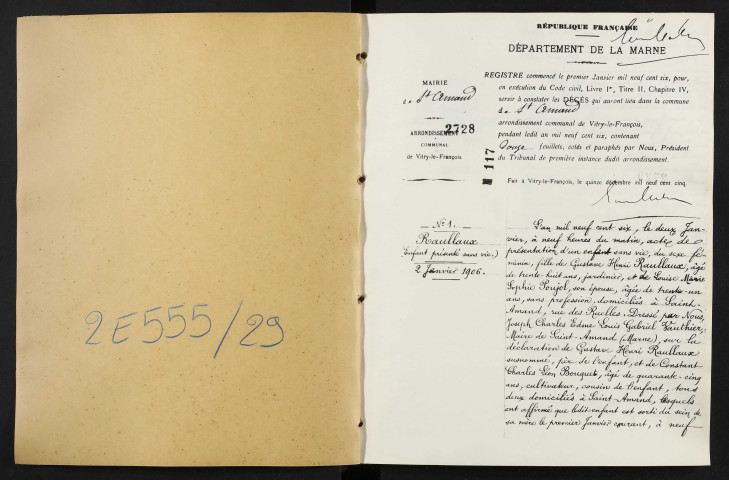 2E555/29
RÉPUBLIQUE FRANÇAISE
DÉPARTEMENT DE LA MARNE
MAIRIE
de St Amand
ARRONDISSEMENT
2728
COMMUNAL
de Vitry-le-François
117
REGISTRE commencé le premier Janvier mil neuf cent six, pour,
en exécution du Code civil, Livre Ier, Titre II, Chapitre IV,
servir à constater les DÉCÈS qui auront lieu dans la commune
de St Amand
arrondissement communal de Vitry-le-François,
pendant ledit an mil neuf cent six, contenant
douze feuillets, cotés et paraphés par Nous, Président
du Tribunal de première instance dudit arrondissement.
Fait à Vitry-le-François, le quinze décembre mil neuf cent cinq.
No 1.
Raullaux
(Enfant présenté sans vie.)
2 Janvier 1906.
L'an mil neuf cent six, le deux Jan-
vier, à neuf heures du matin, acte de
présentation d'un enfant sans vie, du sexe fé-
minin, fille de Gustave Henri Raullaux, âgé
de trente-huit ans, jardinier, et de Louise Marie
Sophie Poujol, son épouse, âgée de trente-un
ans, sans profession, domiciliés à Saint-
Amand, rue des Ruelles. Dressé par Nous,
Joseph Charles Edme Louis Gabriel Vauthier,
Maire de Saint-Amand (Marne), sur la
déclaration de Gustave Henri Raullaux
susnommé, père de l'enfant, et de Constant
Charles Léon Bouquet, âgé de quarante-cinq
ans, cultivateur, cousin de l'enfant, tous
deux domiciliés à Saint-Amand, lesquels
ont affirmé que ledit enfant est sorti du sein de
sa mère le premier Janvier courant, à neuf